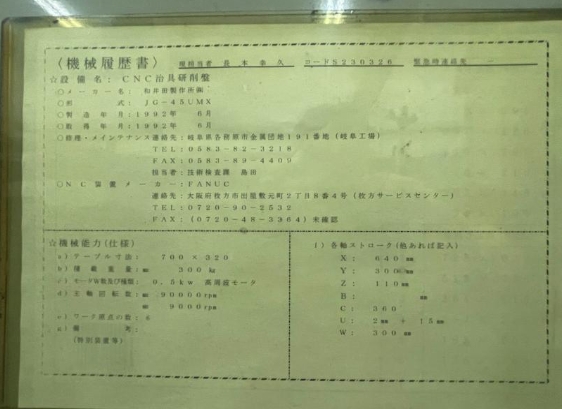 (機械履歴書) 機担当者 長本泰久 コードS230326 緊急時連絡先 −
☆設備名：CNC治具研削盤
○メーカー名：和井田製作所㈱
○形式：JG-45UMX
○製造年月：1992年 6月
○取得年月：1992年 6月
○修理・メインテナンス連絡先：岐阜県各務原市金属団地191番地(岐阜工場)
TEL：0583-82-3218
FAX：0583-89-4409
担当者：技術検査課 島田
○NC装置メーカー：FANUC
連絡先：大阪府枚方市出屋敷元町2丁目8番4号(枚方サービスセンター)
TEL：0720-90-2532
FAX：(0720-48-3364)未確認
☆機械能力(仕様)
a) テーブル寸法：700×320
b) 積載重量：㎜ 300㎏
c) モータW数及び種類：0.5kw
d) 主軸回転数：㎜ 90000rpm
㎜ 9000rpm
e) ワーク原点の数：6
g) 備考：
(特別装置等)
f) 各軸ストローク(他あれば記入)
X： 640㎜
Y： 300㎜
Z： 110㎜
B： ㎜
C： 360
U： 2㎜ + 15㎜
W： 300㎜